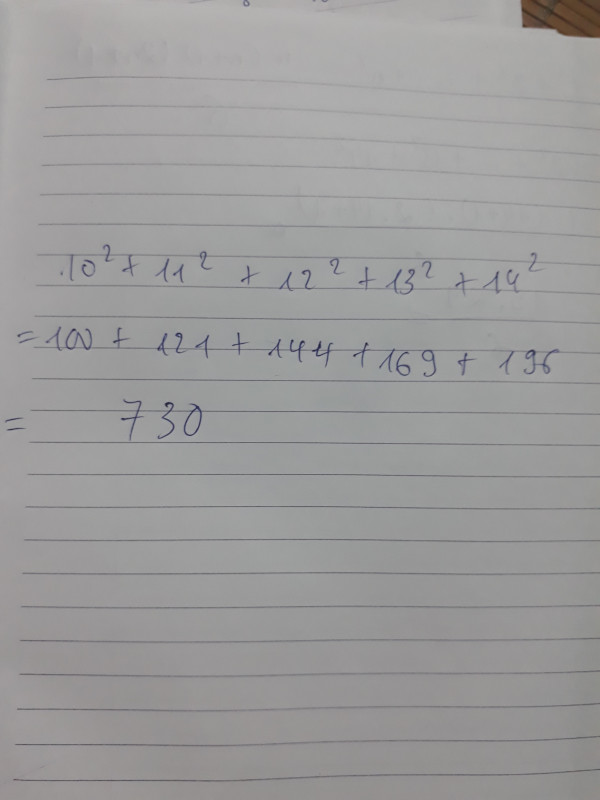 10² + 11² + 12² + 13² + 14²
= 100 + 121 + 144 + 169 + 196
= 730